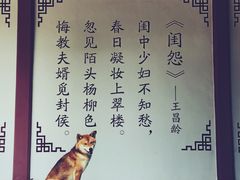 《闺怨》——王昌龄
闺中少妇不知愁，
春日凝妆上翠楼。
忽见陌头杨柳色，
悔教夫婿觅封侯。